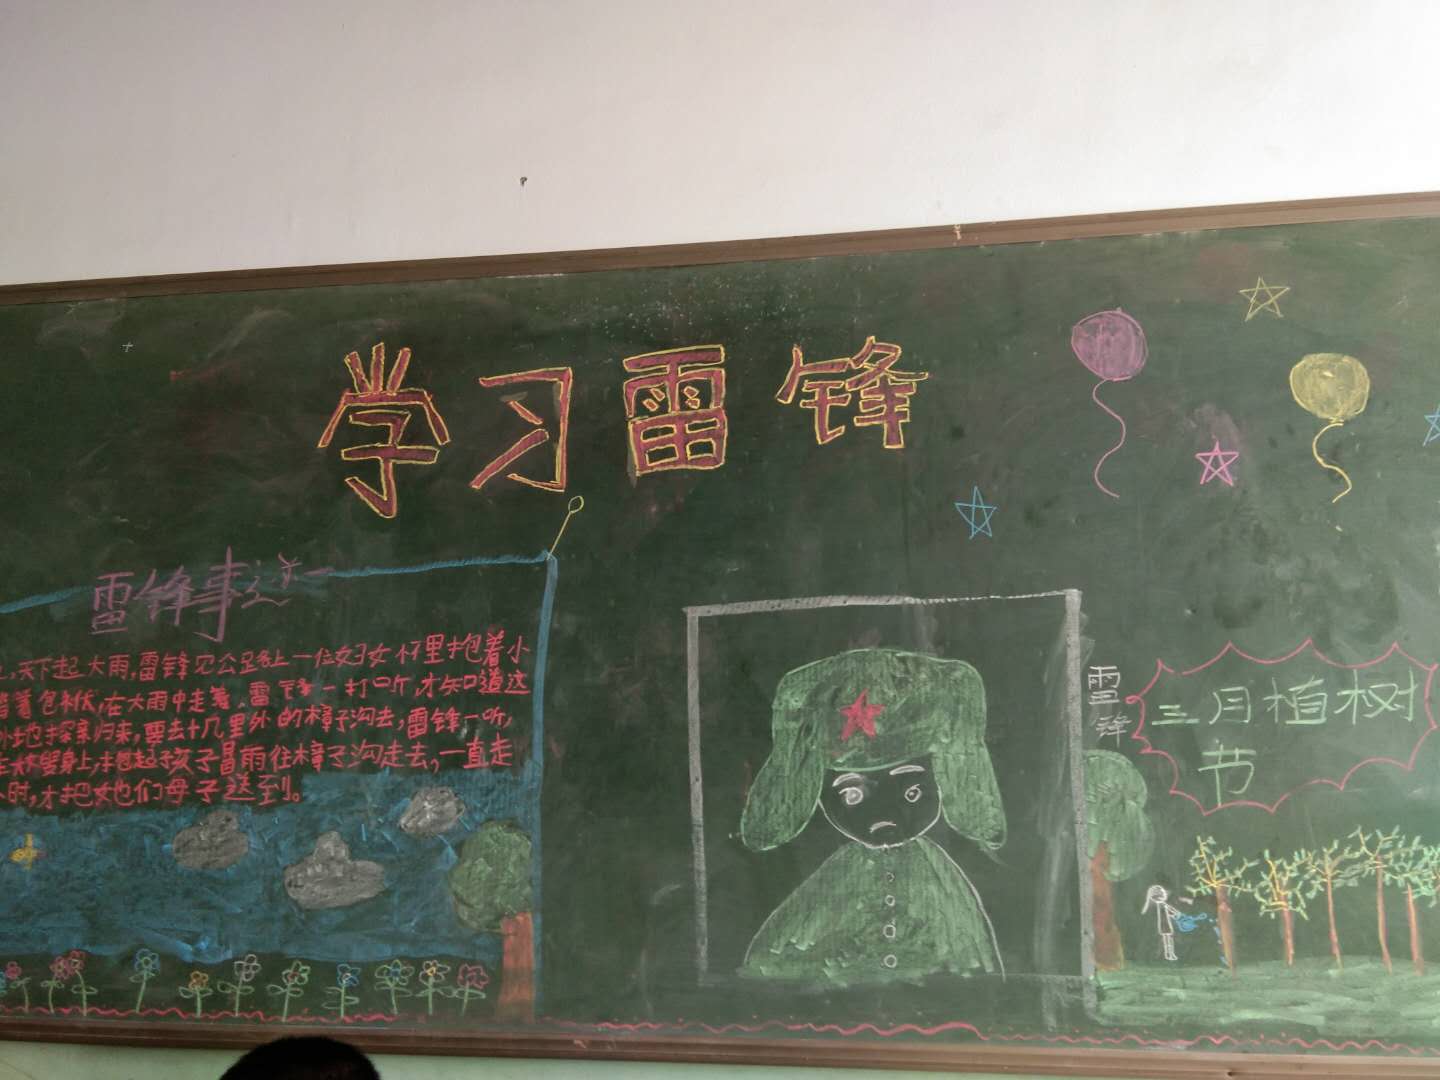 学习雷锋
雷锋事迹一
天下起大雨,雷锋见公路上一位妇女怀里抱着小
着包袱,在大雨中走着。雷锋一打听,才知道这
外地探亲归来,要去十几里外的樟子沟去,雷锋一听,
身上,抱起孩子冒雨往樟子沟走去,一直走
小时,才把她们母子送到。
雷锋
三月植树
节